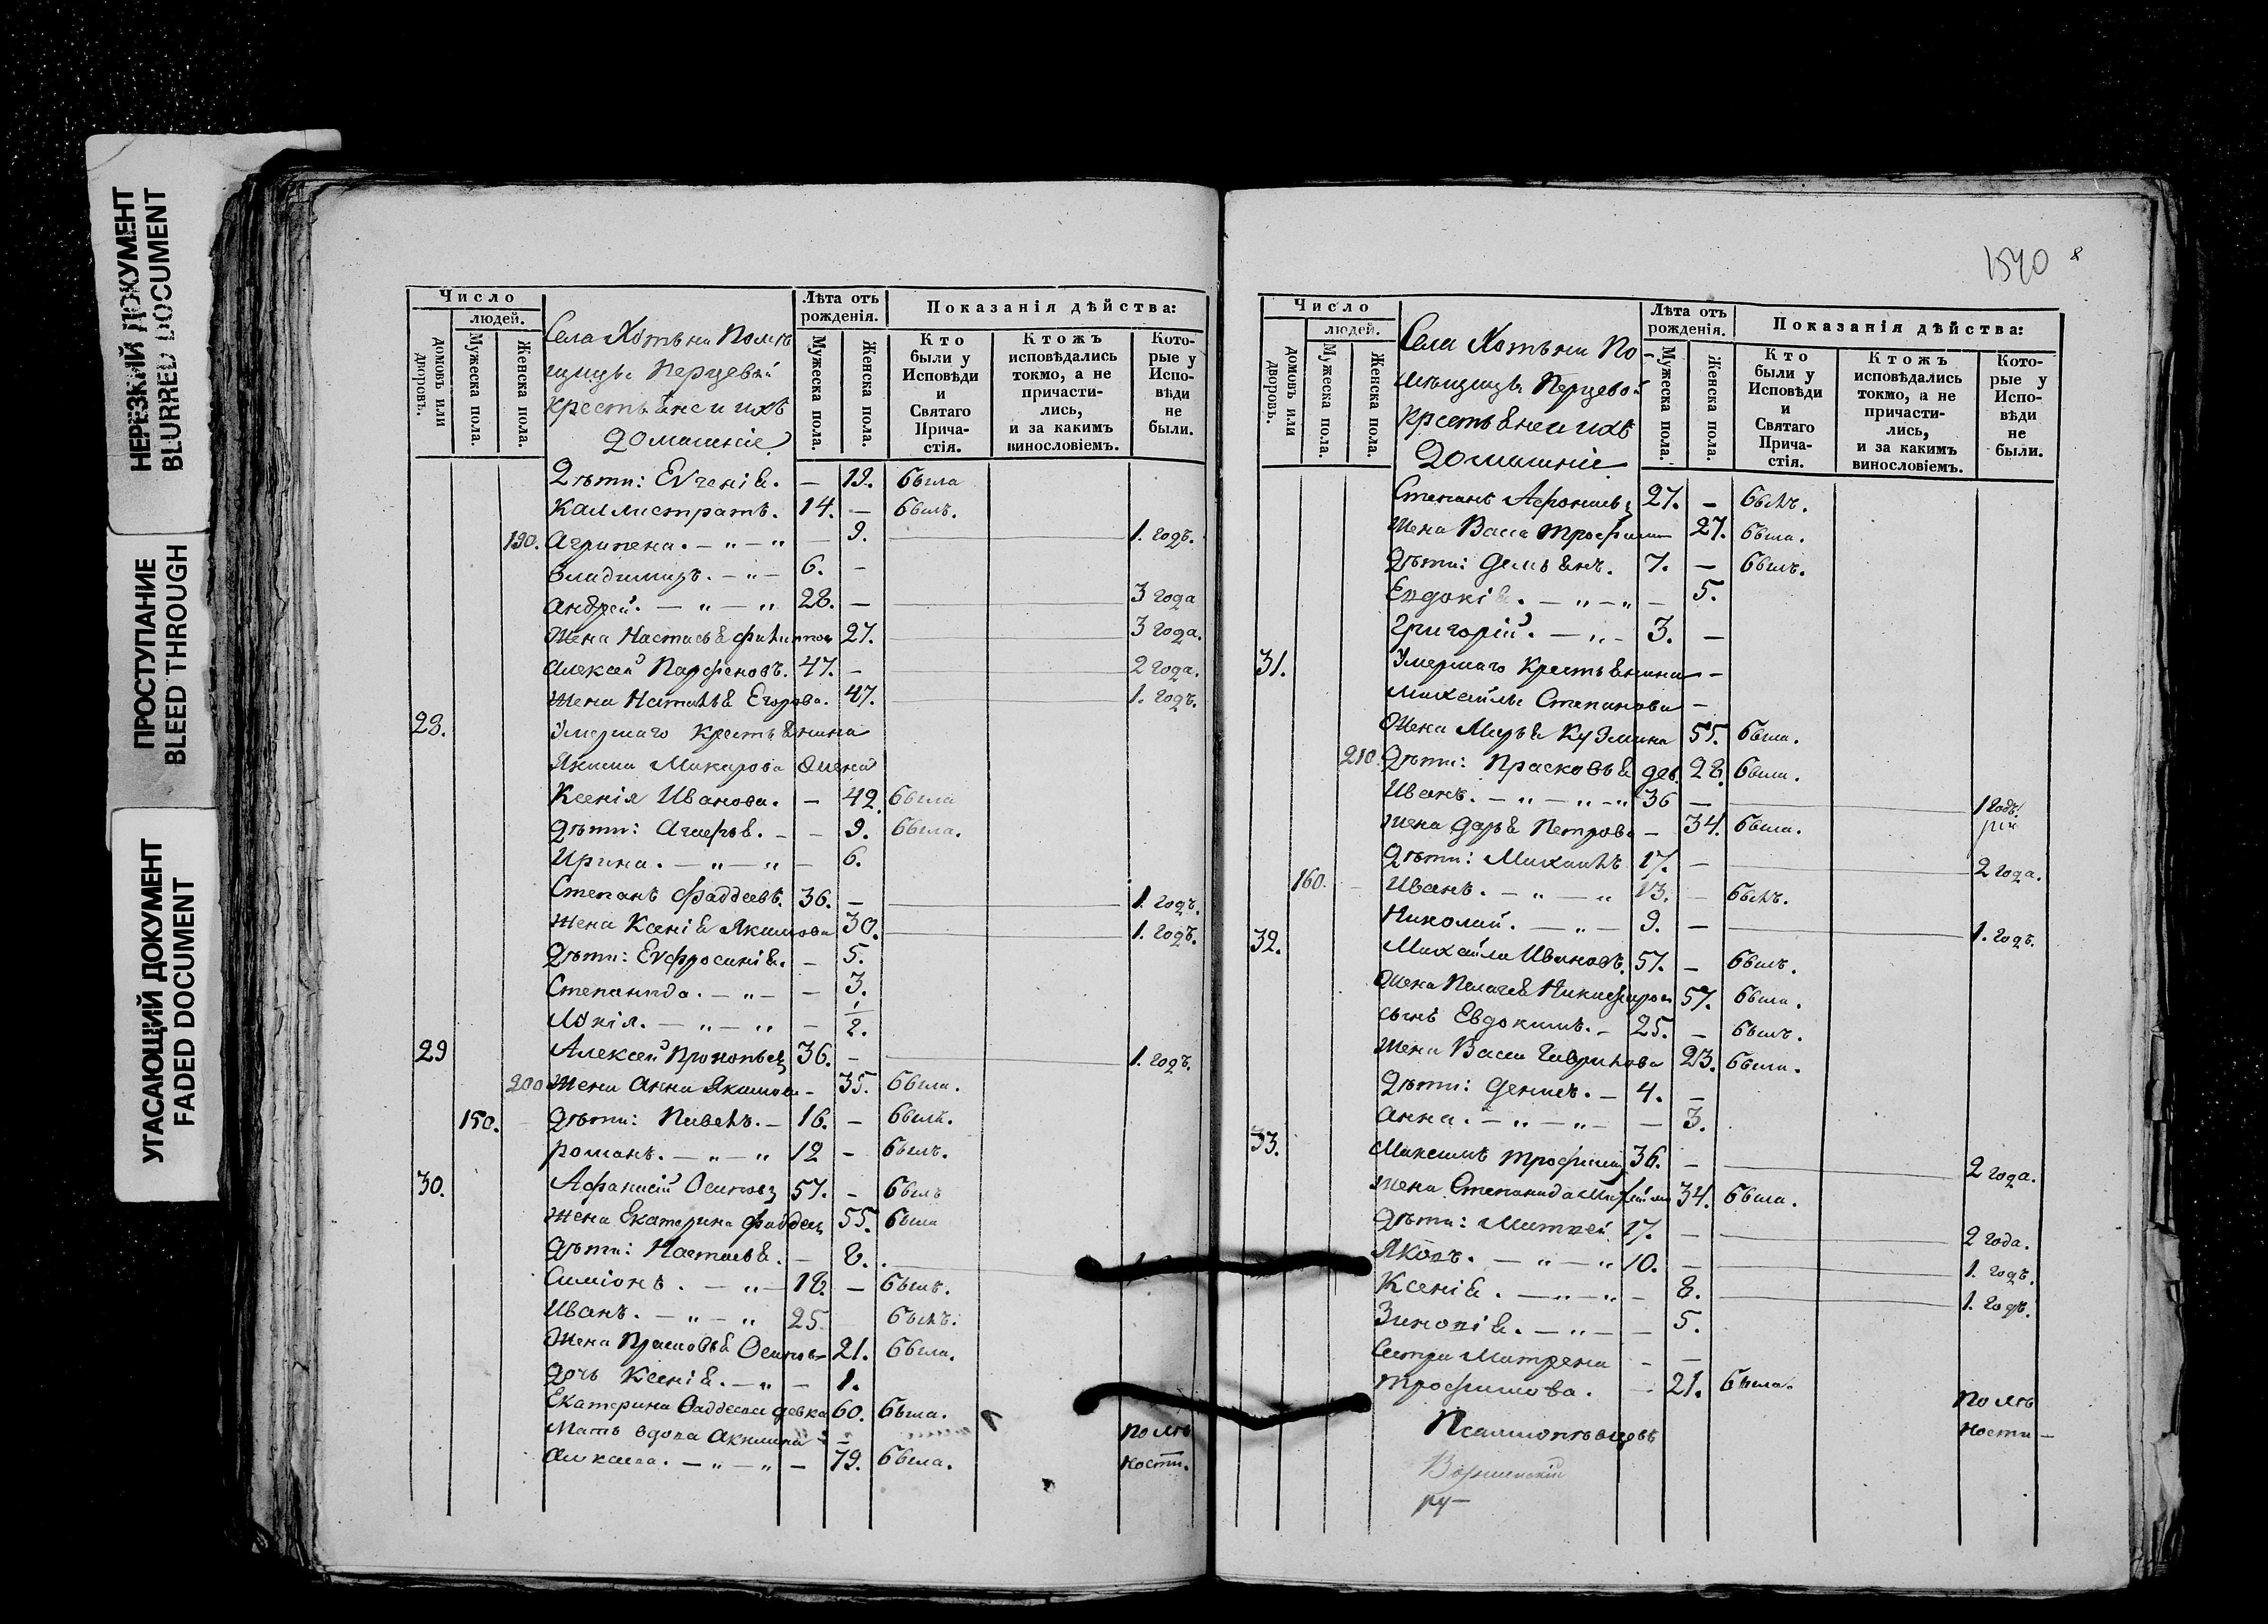 НЕРЕЗКИЙ ДОКУМЕНТ
BLURRED DOCUMENT
ПРОСТУПАНИЕ
BLEED THROUGH
УГАСАЮЩИЙ ДОКУМЕНТ
FADED DOCUMENT
Число
людей.
домовъ или дворовъ.
Мужеска пола.
Женска пола.
Села Хотѣни Помѣ
щицы Перцевой
крестьяне и ихъ
домашніе
Лѣта отъ рожденія.
Мужеска пола.
Женска пола.
Показанія дѣйства:
Кто были у Исповѣди и Святаго Прича-стія.
Ктожъ исповѣдались токмо, а не причасти-лись, и за какимъ винословіемъ.
Кото-рые у Испо-вѣди не были.
Дѣти: Еѵгенія. — 19. была
Каллистратъ. 14. — былъ.
190. Агрипена. — " — " — 9. 1. годъ.
Владимиръ. — " — 6. —
Андрей. — " — " 28. — 3 года
Жена Настасья 27. 3 года.
Алексей Парфеновъ. 47. — 2 года.
Жена Наталья Егорова. 47. 1. годъ.
28. Умершаго Крестьянина
Якима Макарова Жена
Ксенія Иванова. — 42. была
Дѣти: Агафья. — — 9. была.
Ирина. — " — " — 6.
Степанъ Фаддеевъ. 36. — 1. годъ.
Жена Ксенія Якимова 30. 1. годъ.
Дѣти: Еѵфросинія. — 5.
Степанида. — " — — 3.
— " — " — 1/2.
29 Алексей Прокопьев 36. — 1. годъ.
200 Жена Анна Якимова — 35. была.
150. Дѣти: Павелъ. — 16. — былъ.
Романъ. — " — " 12 — былъ.
30. Афанасій Осипов 57. — былъ
Жена Екатерина Фаддеев 55. была
Дѣти: Настасья. — 8.
Симіонъ. — " — 18. — былъ.
Иванъ. — " — " 25. былъ.
Жена Прасковья Осипов 21. была.
дочь Ксенія. — " — 1.
Екатерина Фаддеева девка 60. была.
Мать вдова Акилина по мло
— " — " — 79. была. кости.
1540 8
Число
людей.
домовъ или дворовъ.
Мужеска пола.
Женска пола.
Села Хотѣни По-
мѣщицы Перцевой
крестьяне и ихъ
Домашніе
Лѣта отъ рожденія.
Мужеска пола.
Женска пола.
Показанія дѣйства:
Кто были у Исповѣди и Святаго Прича-стія.
Ктожъ исповѣдались токмо, а не причасти-лись, и за какимъ винословіемъ.
Кото-рые у Испо-вѣди не были.
Степанъ Афонасьев 27. — былъ.
Жена Васса Трофим 27. была.
Дѣти: Демьянъ. 7. — былъ.
Евдокія. — " — " — 5.
Григорій. — " — 3. —
31. Умершаго Крестьянина —
Михайлы Степанова —
Жена Марья Кузмина 55. была.
210. Дѣти: Прасковья дев. 28. была.
Иванъ. — " — " — " 36 — 1 годъ.
Жена Дарья Петрова — 34. была.
Дѣти: Михаилъ 17. — 2 года.
160. Иванъ. — " — " 13. — былъ.
Николай. — " — 9. — 1. годъ.
32. Михайла Ивановъ. 57. — былъ.
Жена Пелагея Никифоров 57. была.
сынъ Евдокимъ. — 25. — былъ.
Жена Васса Гаврилова 23. была.
Дѣти: Денисъ. — 4. —
Анна. — " — " — — 3.
33. Максимъ Трофим 36. — 2 года.
Жена Степанида 34. была.
Дѣти: Матвей 17. — 2 года.
Яковъ. — " — " 10. — 1. годъ.
Ксенія. — " — " — 8. 1. годъ.
Зиновія. — " — — 5.
Сестра Матрена — —
Трофимова. — 21. была. по мло
кости —